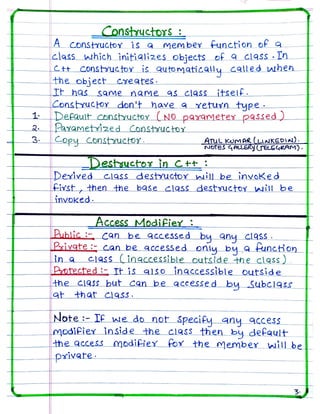 Constructors :
A constructor is a member function of a
class which initializes objects of a class. In
C++ constructor is automatically called when
the object creates.
It has same name as class itself.
Constructor don't have a return type.
1. Default constructor (NO parameter passed)
2. Parametrized Constructor
3. Copy Constructor.
ATUL KUMAR (LINKEDIN).
NOTES GALLERY (TELEGRAM).
Destructor in C++ :
Derived class destructor will be invoked
first, then the base class destructor will be
invoked.
Access Modifier :
Public :- can be accessed by any class.
Private :- can be accessed only by a function
in a class (inaccessible outside the class)
Protected :- It is also inaccessible outside
the class but can be accessed by subclass
of that class.
Note :- If we do not specify any access
modifier inside the class then by default
the access modifier for the member will be
private.
3